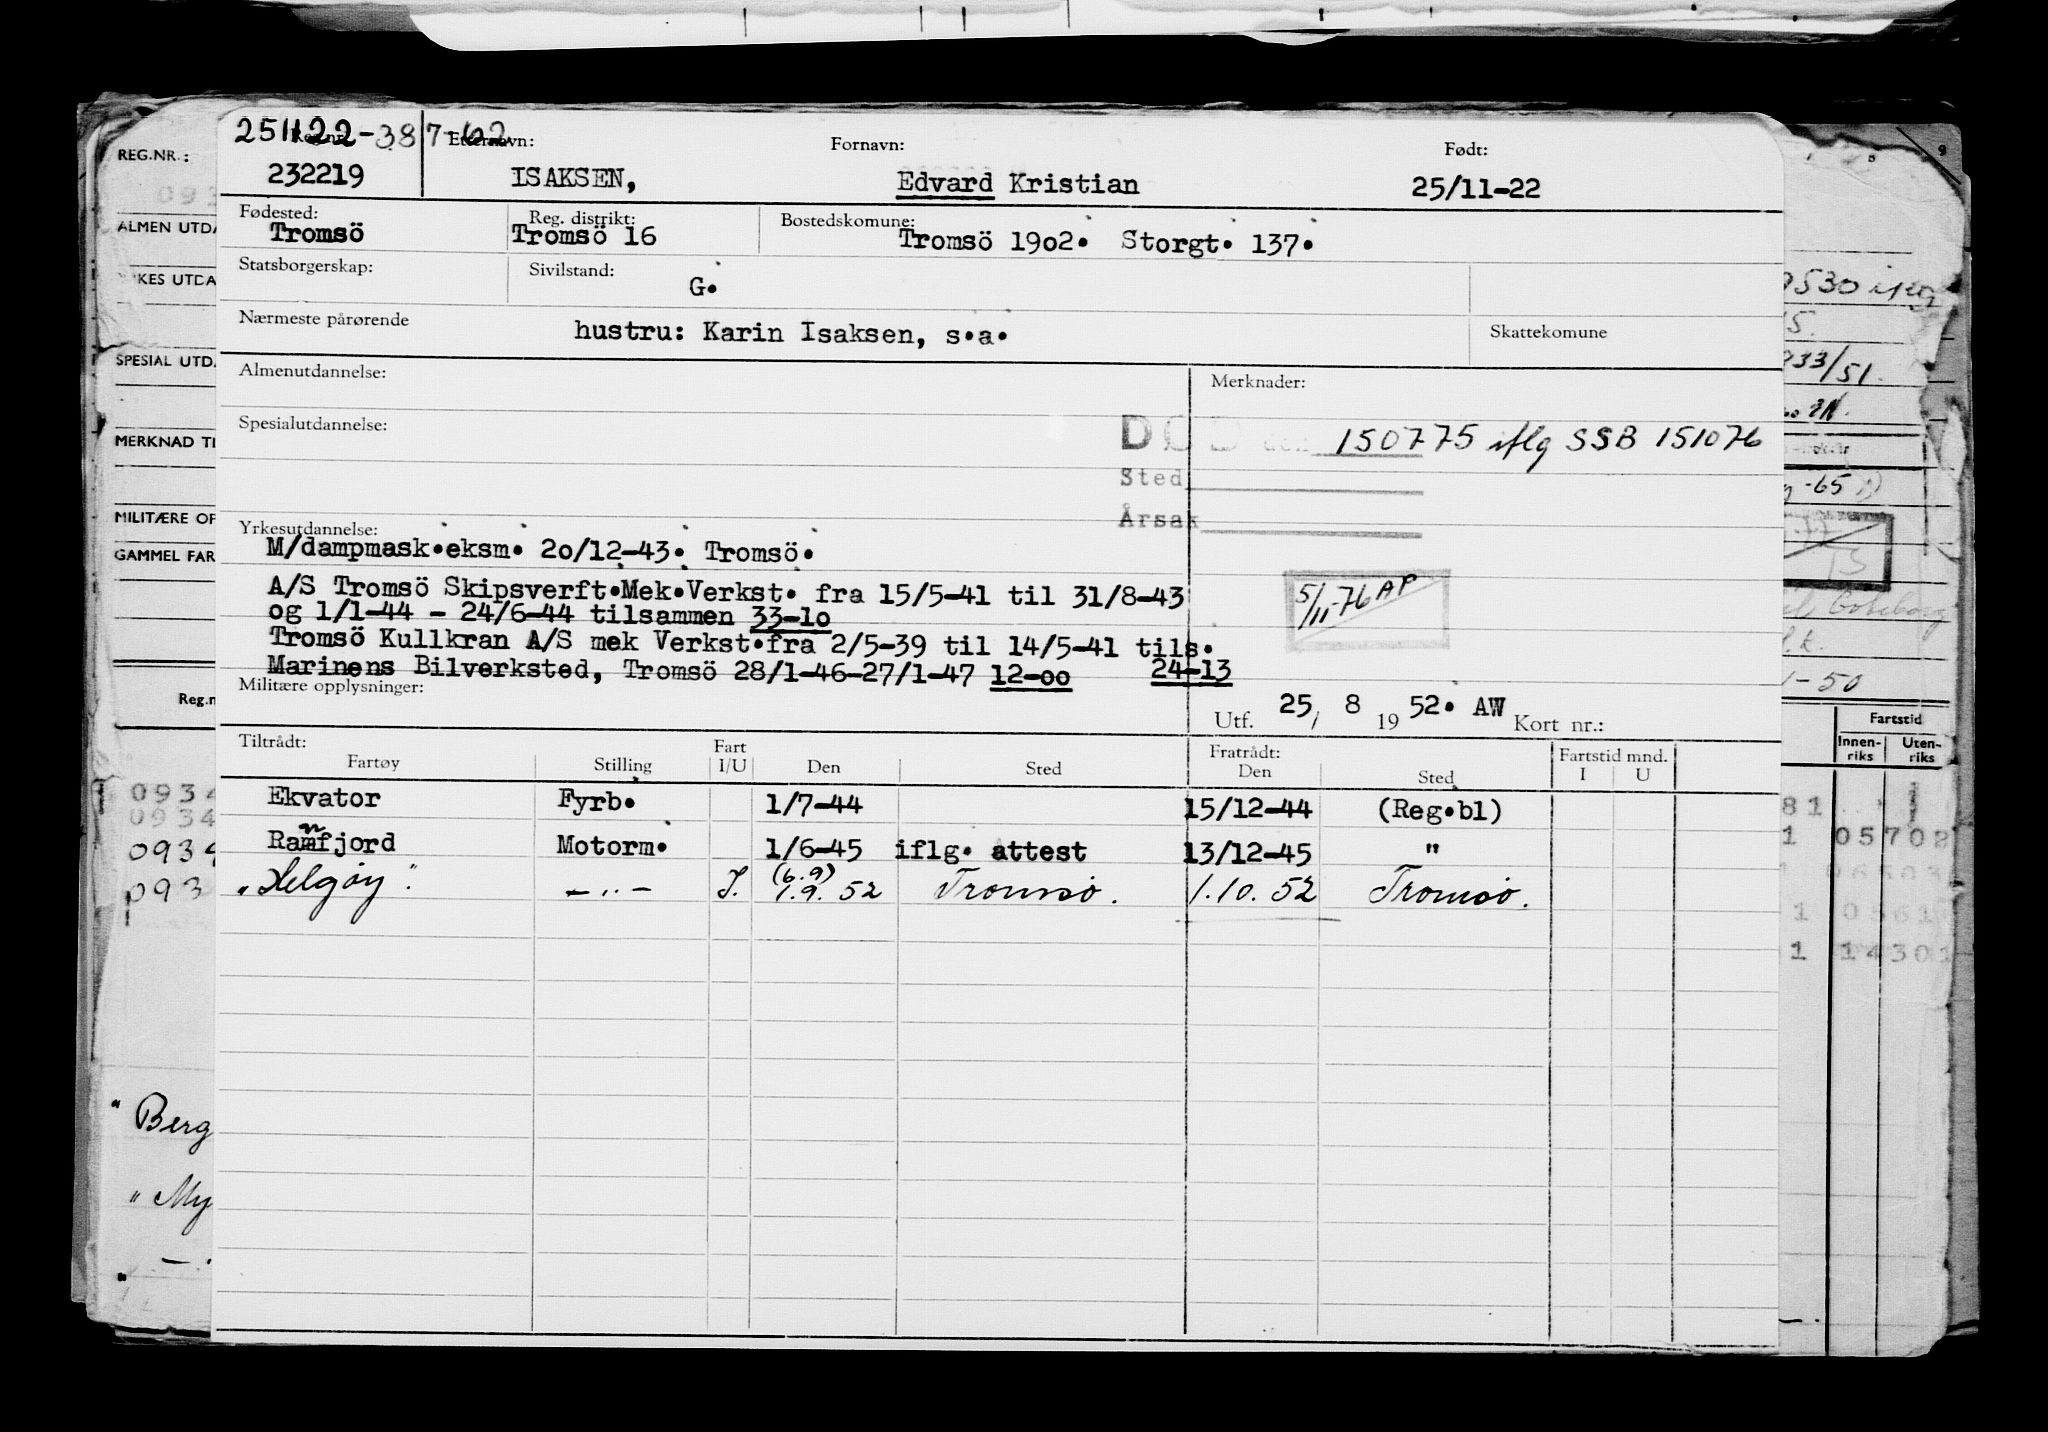 251122-387-62
Reg.nr. Etternavn: Fornavn: Født:
232219 ISAKSEN, Edvard Kristian 25/11-22
Fødested: Reg. distrikt: Bostedskomune:
Tromsö Tromsö 16 Tromsö 19o2. Storgt. 137.
Statsborgerskap: Sivilstand:
G.
Nærmeste pårørende hustru: Karin Isaksen, s.a. Skattekomune
Almenutdannelse: Merknader:
Spesialutdannelse: DØD den 150775 iflg SSB 151076
Sted
Årsak
Yrkesutdannelse:
M/dampmask.eksm. 2o/12-43. Tromsö.
A/S Tromsö Skipsverft.Mek.Verkst. fra 15/5-41 til 31/8-43
og 1/1-44 - 24/6-44 tilsammen 33-1o
5/11-76 AP
Tromsö Kullkran A/S mek Verkst.fra 2/5-39 til 14/5-41 tils.
Marinens Bilverksted, Tromsö 28/1-46-27/1-47 12-oo 24-13
Militære opplysninger:
Utf. 25/ 8 19 52. AW Kort nr.:
Tiltrådt: Fratrådt: Fartstid mnd.
Fartøy Stilling Fart I/U Den Sted Den Sted I U
Ekvator Fyrb. 1/7-44 15/12-44 (Reg.bl)
Ramfjord n Motorm. 1/6-45 iflg. attest 13/12-45 "
"Helgøy". -"- I. (6.9) 1.9.52 Tromsø. 1.10.52 Tromsø.
REG.NR.:
ALMEN UTDA
KES UTDA
SPESIAL UTDA
MERKNAD TI
MILITÆRE OP
GAMMEL FAR
Reg.n
0934
0934
0934
093
" Berg
" My
9
933/51.
-65
-50
Fartstid
Innen-riks Uten-riks
81
1 05702
1 0561
1 14301